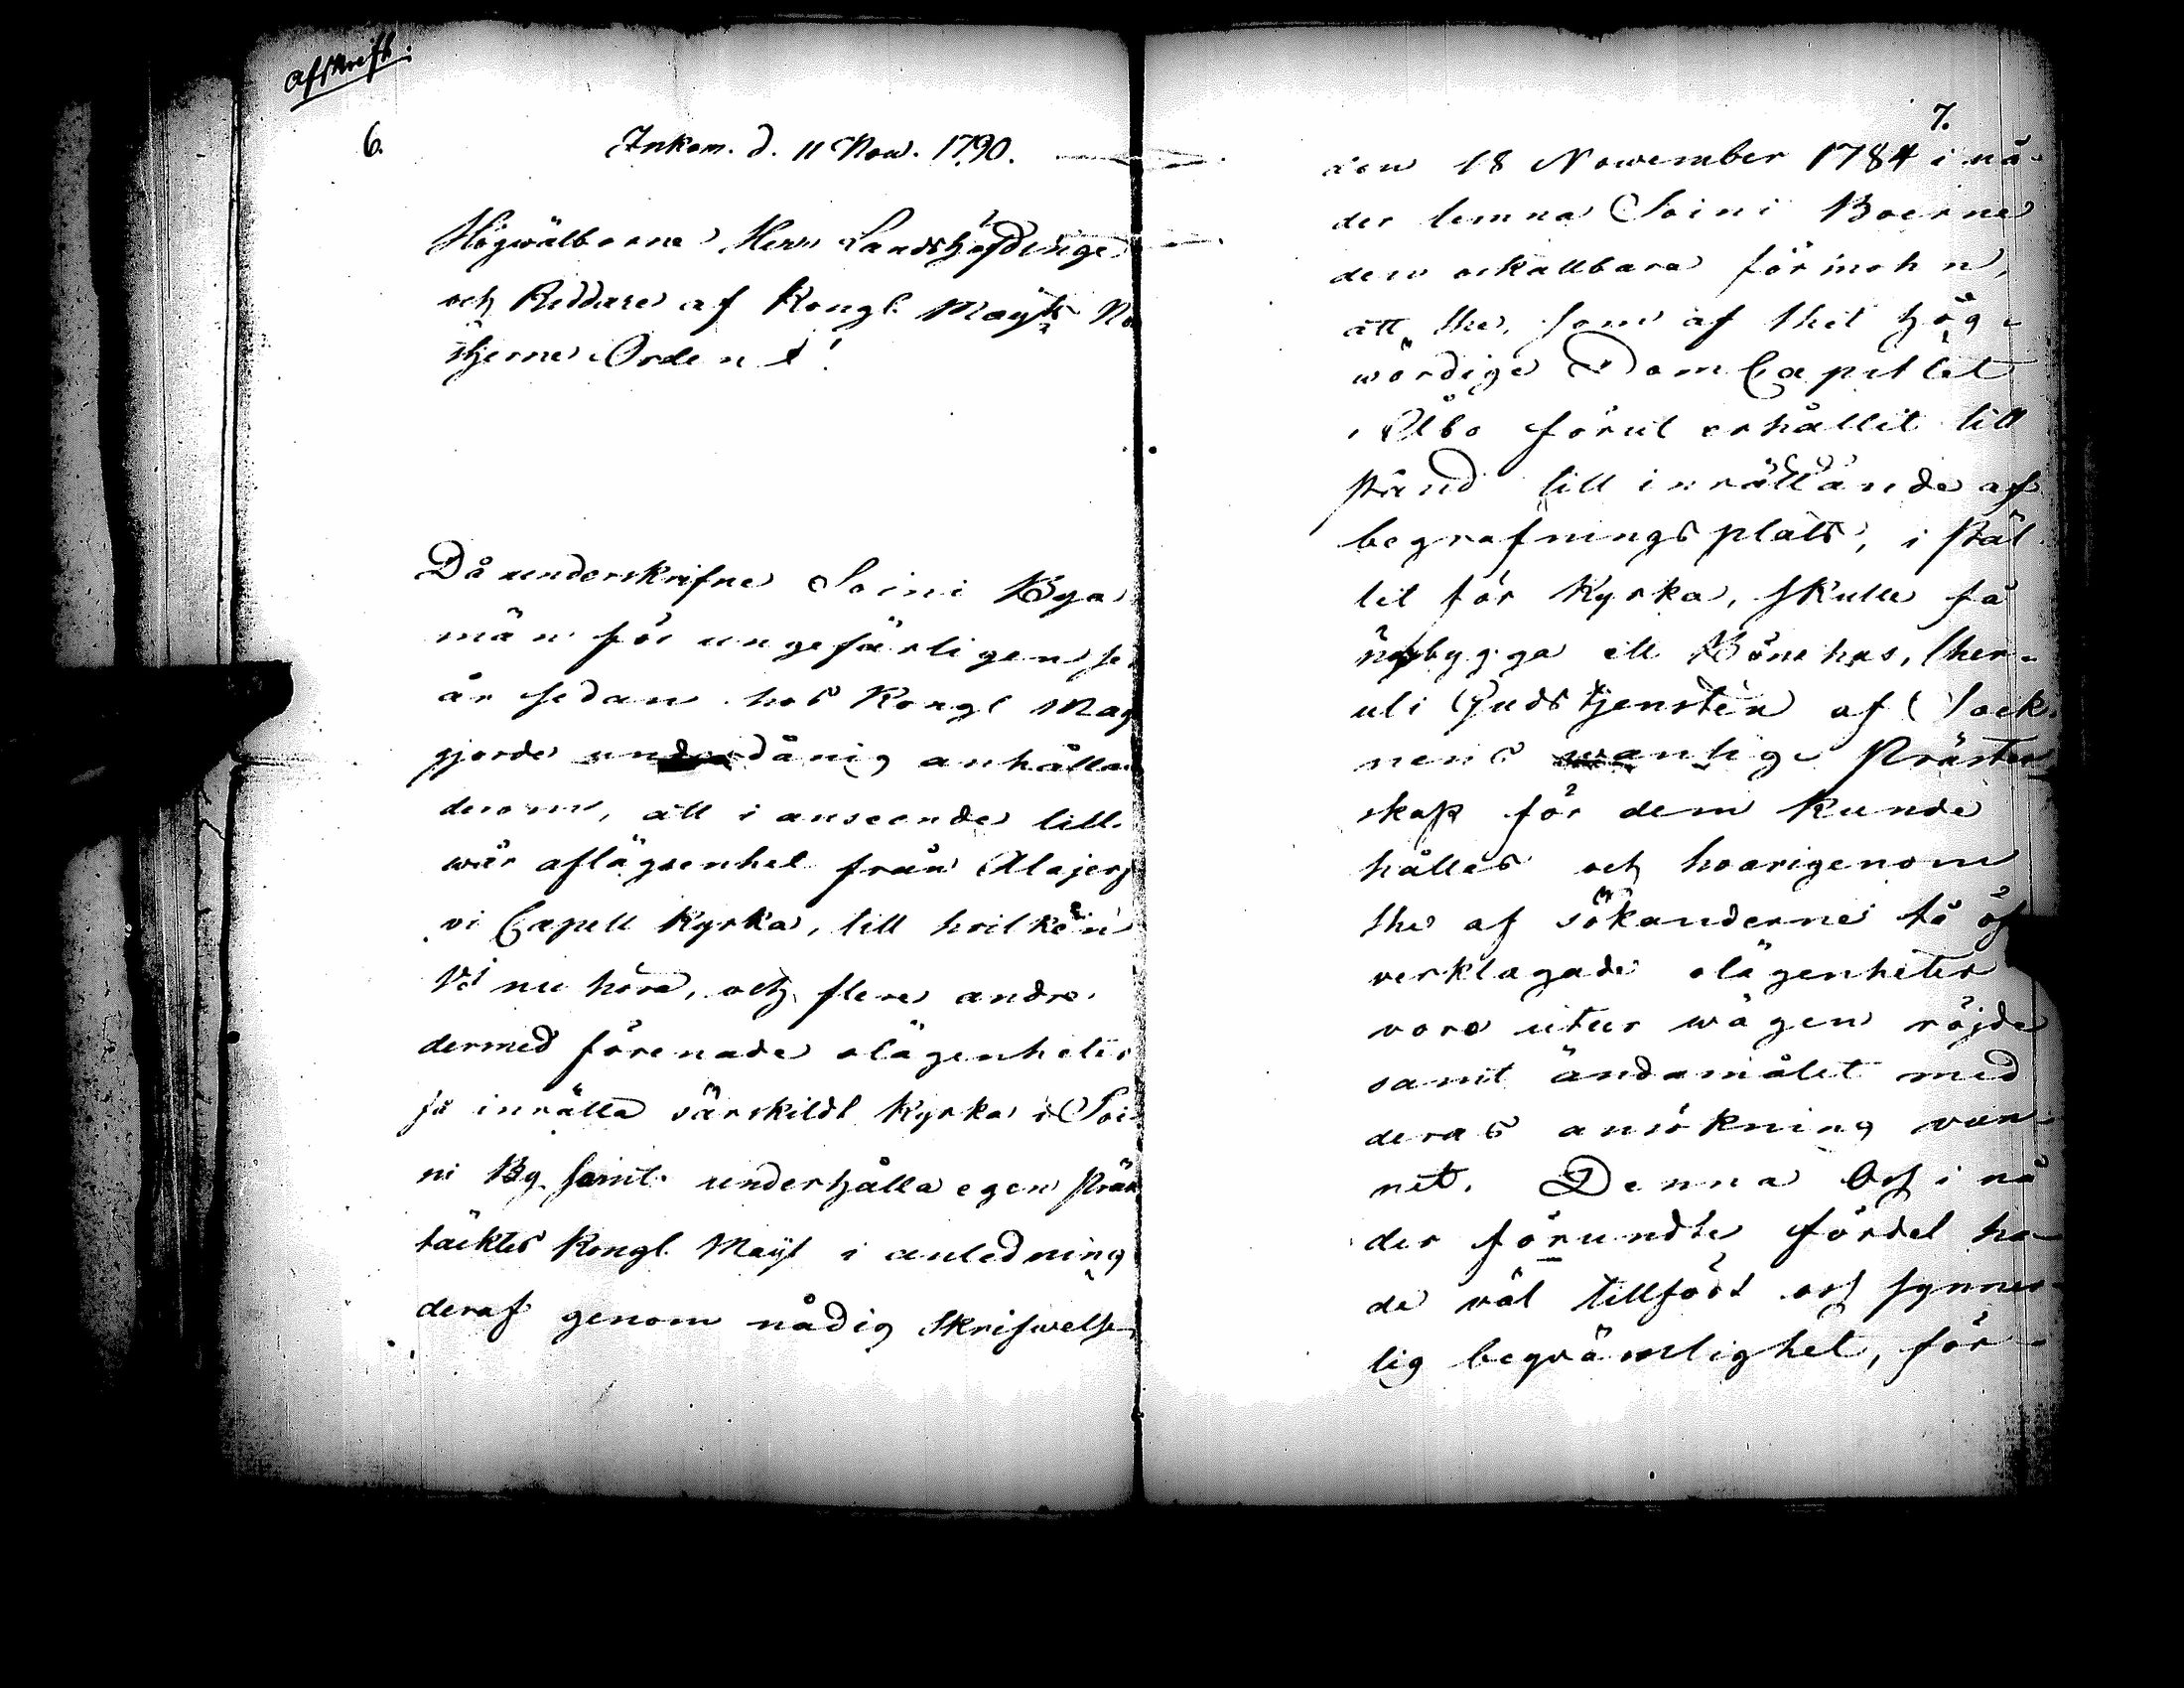 Afskrift:
6.
Inkom. d. 11 Now. 1790.
Högwälborne Herr Landshöfdinge
och Riddare af Kongl. Mayts No
stjerne Orden!
Då underskrifne Soini Bya
män för ungefärligen se
år sedan hos Kongl May
gjorde underdånig anhållan
derom, att i anseende till
wår aflägsenhet från Alajerf
vi Capell Kyrka, till hvilken
Vi nu höra, och flere andre
dermed förenade olägenheter
få inrätta särskildt Kyrka i Soi
ni By samt underhålla egen Präst
täcktes Kongl. Mayt i anledning
deraf genom nådig Skrifwelse
7.
den 18 November 1784 i nå-
der lemna Soini Boerne
den oskattbara förmohn,
att the, som af thet hög-
wördige DomCapitlet
i Åbo förut erhållit till
stånd till inrättande af
begrafningsplats, i stäl
let för Kyrka, skulle få
uppbygga ett Bönehus, ther-
uti Gudstjensten af Sock-
nens wanlige Präster-
skap för dem kunde
hålles och hvarigenom
the af sökanderne få öf
verklagade olägenheter
voro utur wägen röjde
samt ändamålet med
deras ansökning vun-
net. Denna Oss i nå
der förundte fördel ha-
de väl tillfört oss synner-
lig beqvämlighet, för-